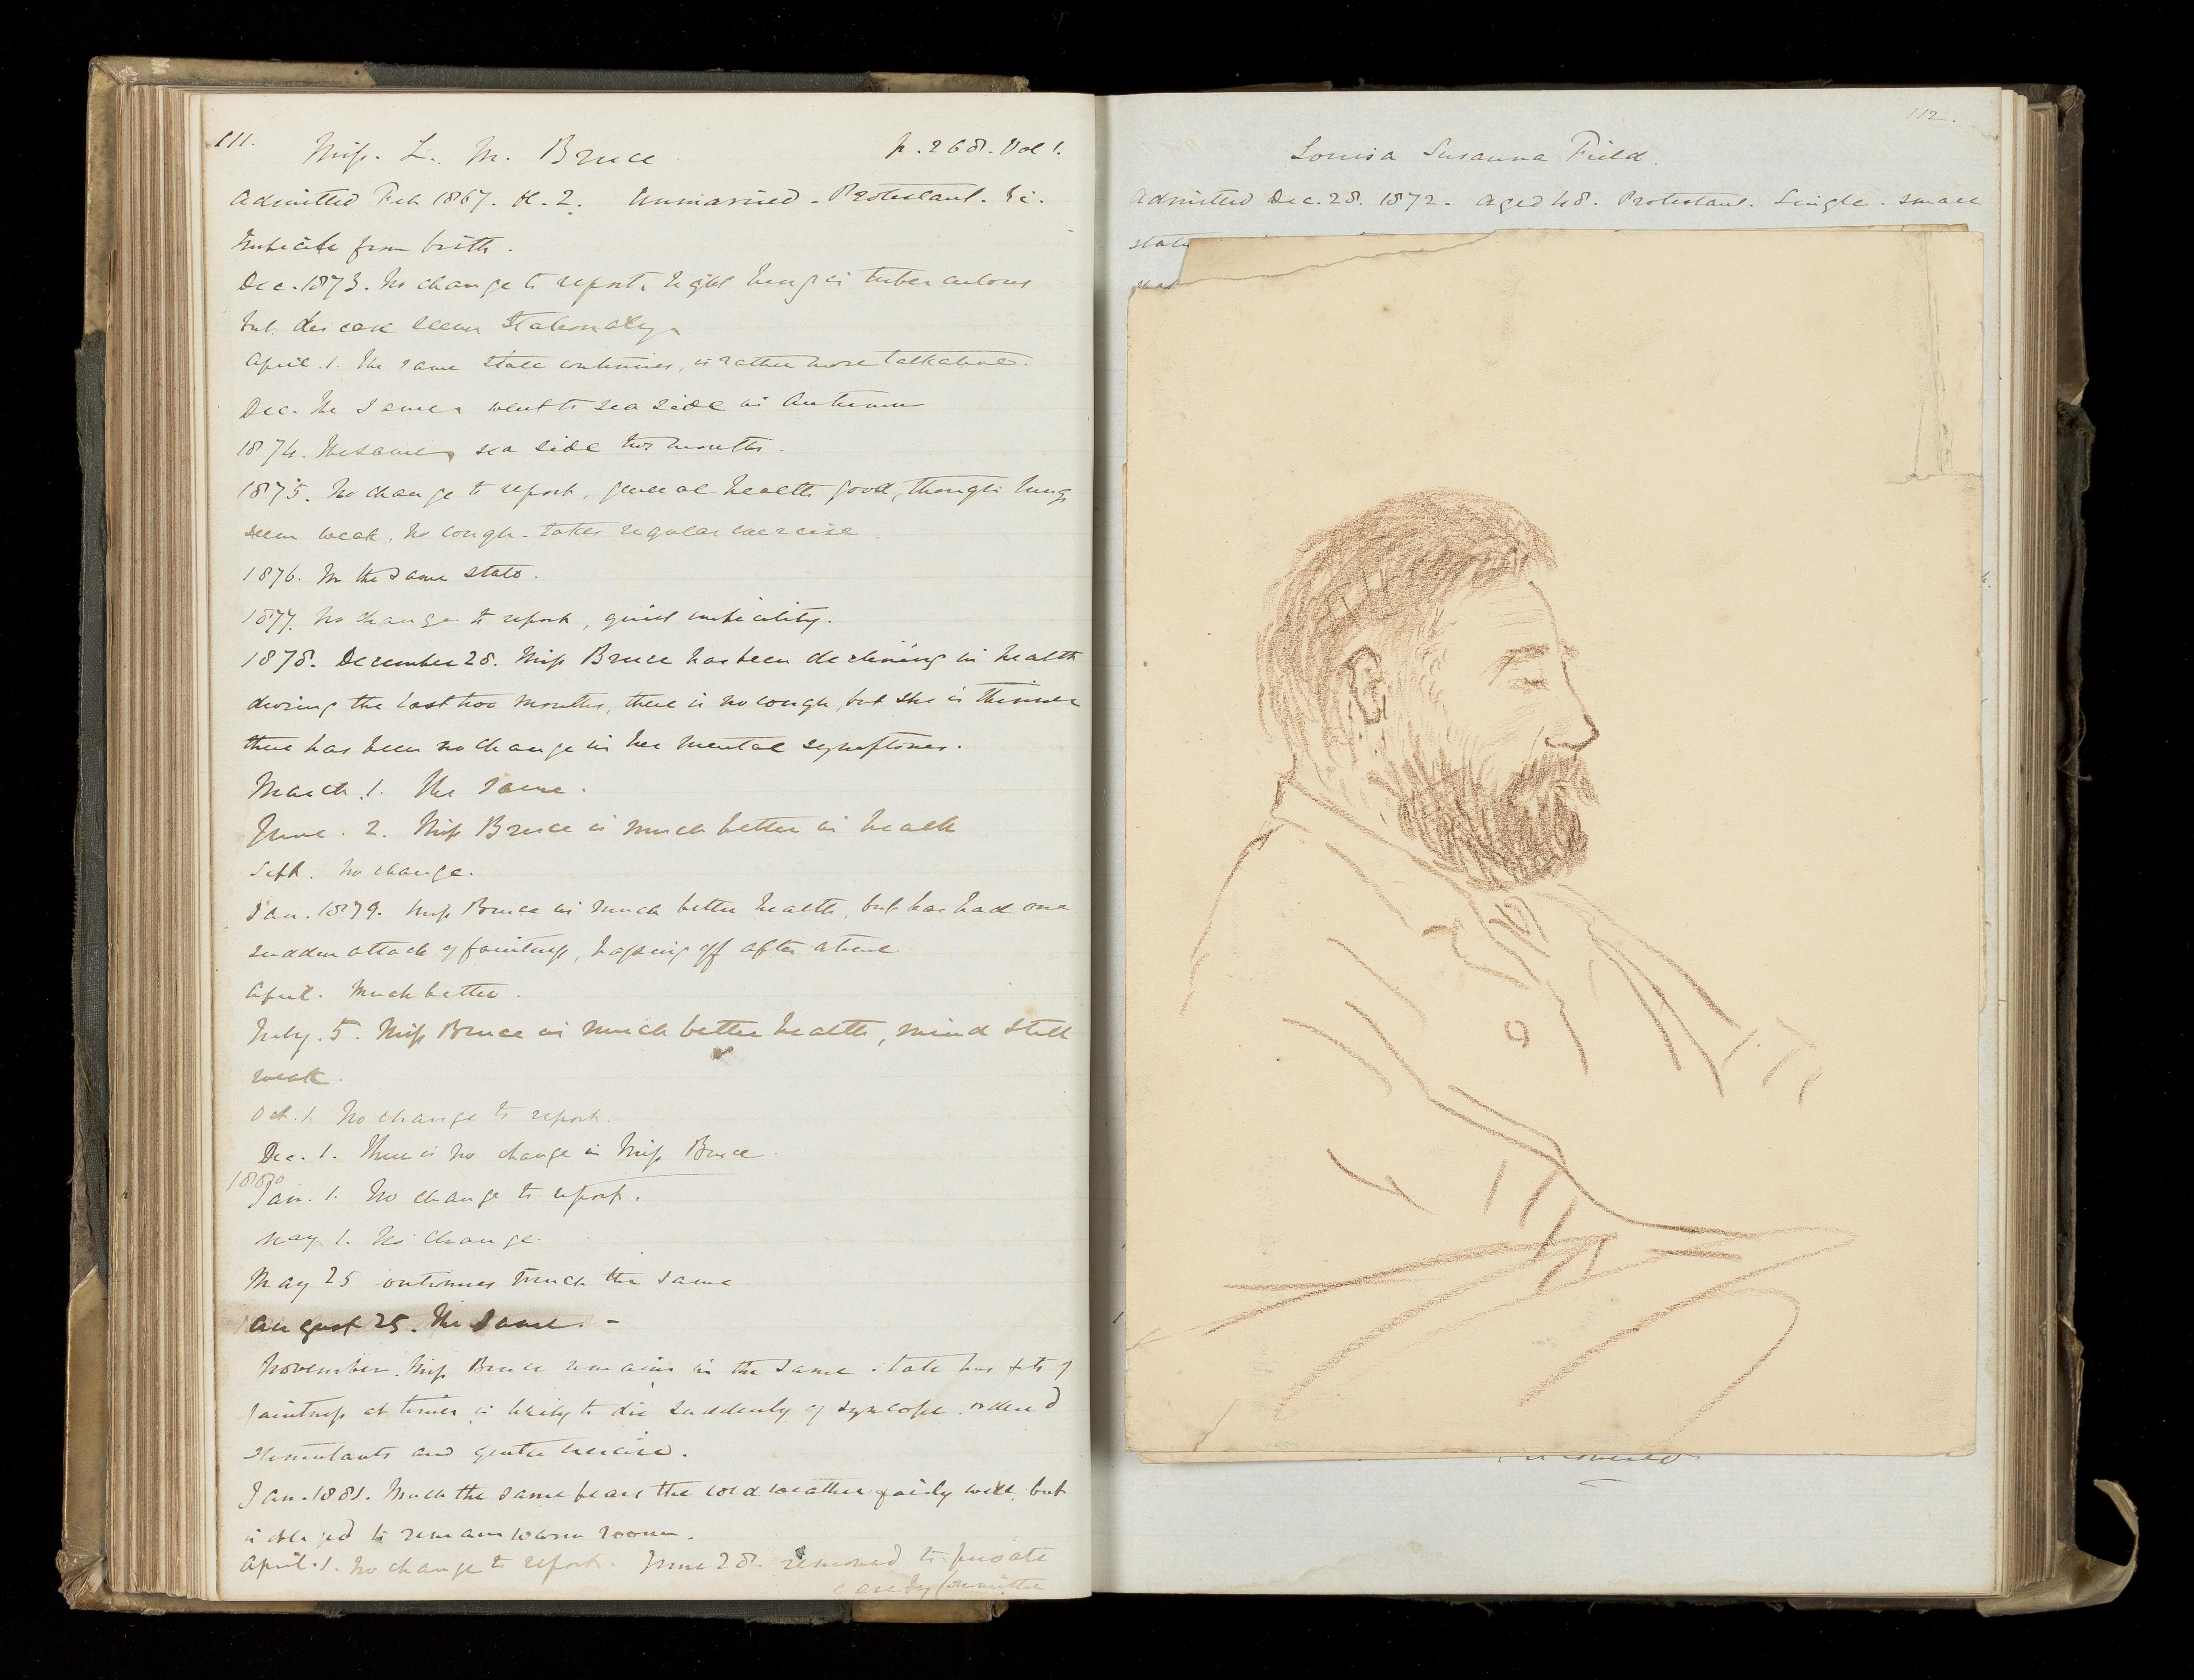 111. Miss. L. M. Bruce p. 268. Vol 1.
Admitted Feb 1867. Unmarried - Protestant. &c.
Imbecile from birth.
Dec. 1873. No change to report, right lung is tubercular
but disease seems stationary
April. 1. The same state continues, is rather more talkative.
Dec. The same, went to sea side in Autumn
1874. The same, sea side two months.
1875. No change to report, general health good, though lungs
seem weak, no cough. takes regular exercise
1876. In the same state.
1877. No change to report, quiet imbecility.
1878. December 28. Miss Bruce has been declining in health
during the last two months, there is no cough, but she is thinner
there has been no change in her mental symptoms.
March. 1. The same.
June. 2. Miss Bruce is much better in health
Sept. No change.
Jan. 1879. Miss Bruce in much better health, but has had one
sudden attack of faintness, passing off after a time
April. Much better.
July. 5. Miss Bruce in much better health, mind still
weak.
Oct. 1. No change to report.
Dec. 1. There is no change in Miss Bruce.
1880
Jan. 1. No change to report.
May 1. No change.
May 25 continues much the same
August 25. The same. -
November. Miss Bruce remains in the same state has fits of
faintness at times, is likely to die suddenly of syncope. ordered
stimulants and gentle exercise.
Jan. 1881. Much the same bears the cold weather fairly well, but
is obliged to remain warm room.
April. 1. No change to report. June 28. removed to private
care by Committee
112.
Louisa Susanna Field.
Admitted Dec. 28. 1872. Aged 48. Protestant. Single. small